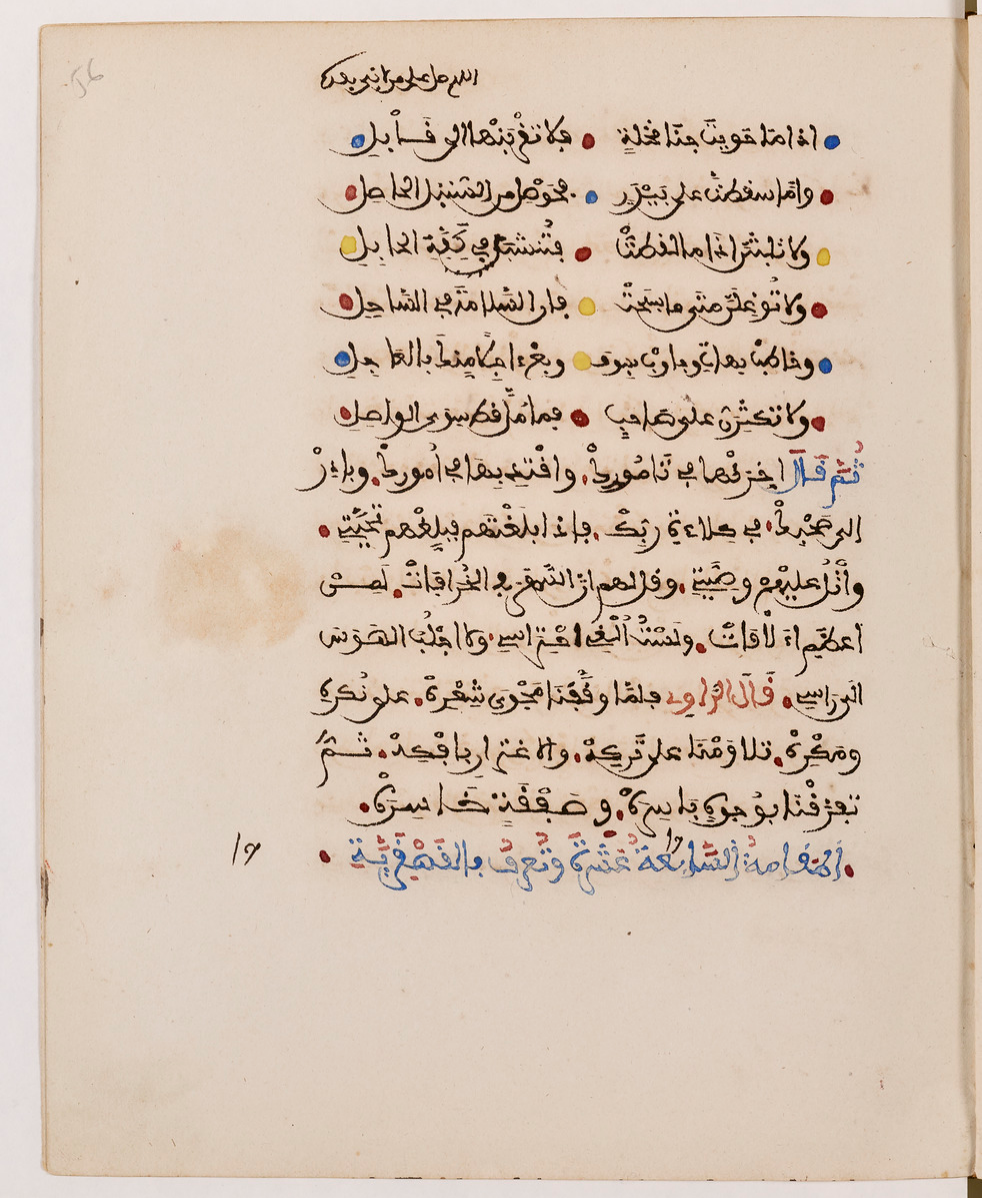 56
اللهم صل على من لا نبي بعده
اذا ما حويت جنا نخلة فلا تقربنها الى قابل
واما سقطت على بيدر فحوصل من السنبل الحاصل
ولا تلبثن اذا ما لقطت فتنشب في كفة الحابل
ولا توغلن متى ما سبحت فان السلامة في الساحل
وخاطب بهات وجاوب بسوف وبع ءاجلا منك بالعاجل
ولا تكثرن على صاحب فما مل قط سوى الواصل
ثم قال اخزنها في تامورك وافتد بها في أمورك وبادر
الى صحبك في كلاءة ربك فاذا بلغتهم فبلغهم تحيتي
واتل عليهم وصيتي وقل لهم ان السهر في الخرافات لمن
اعظم الآفات ولست ألغي احتراسي ولا اجلب الهوس
الى راسي قال الراوي فلما وقفنا فحوى شعره على نكره
ومكره تلاومنا على تركه والاغترار بافكه ثم
تفرقنا بوجوه باسرة وصفقة خاسرة
المقامة السابعة عشرة وتعرف بالقهقرية
17